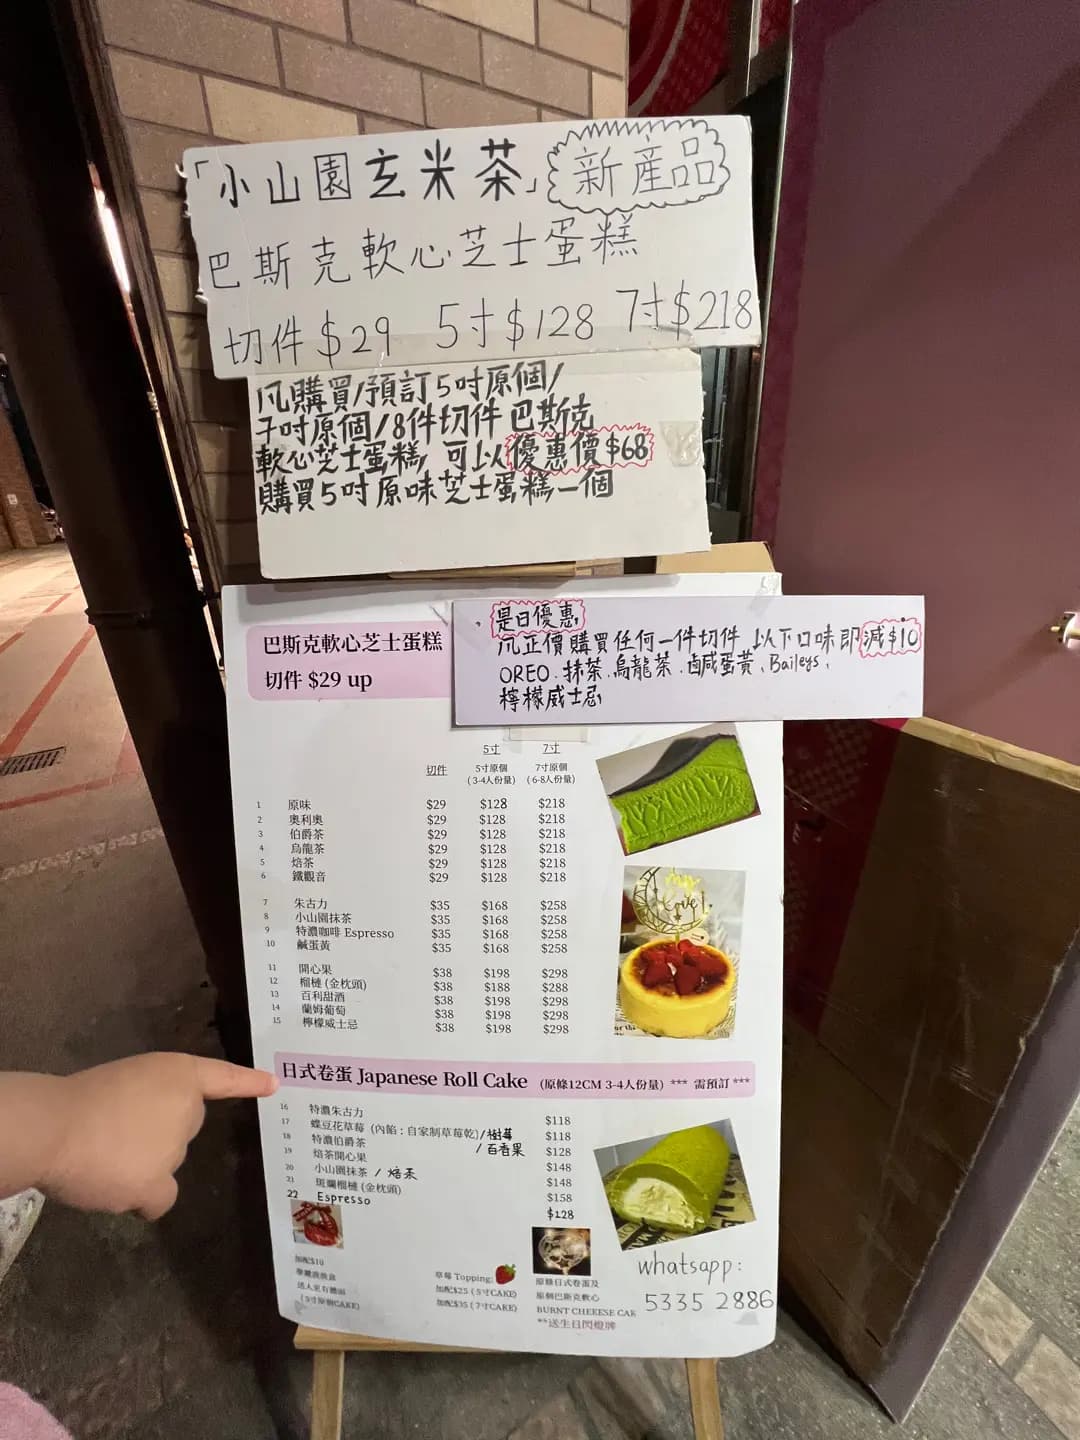 「小山園玄米茶」新產品
巴斯克軟心芝士蛋糕
切件 $29 5寸 $128 7寸 $218
凡購買/預訂5吋原個/
7吋原個/8件切件 巴斯克
軟心芝士蛋糕, 可以優惠價$68
購買5吋原味芝士蛋糕一個
是日優惠
凡正價購買任何一件切件, 以下口味即減$10
OREO、抹茶、烏龍茶、鹵咸蛋黃、Baileys、
檸檬威士忌
巴斯克軟心芝士蛋糕
切件 $29 up
5寸 7寸
切件 5寸原個 7寸原個
(3-4人份量) (6-8人份量)
1 原味 $29 $128 $218
2 奧利奧 $29 $128 $218
3 伯爵茶 $29 $128 $218
4 烏龍茶 $29 $128 $218
5 焙茶 $29 $128 $218
6 鐵觀音 $29 $128 $218
7 朱古力 $35 $168 $258
8 小山園抹茶 $35 $168 $258
9 特濃咖啡 Espresso $35 $168 $258
10 鹹蛋黃 $35 $168 $258
11 開心果 $38 $198 $298
12 榴槤 (金枕頭) $38 $188 $288
13 百利甜酒 $38 $198 $298
14 蘭姆葡萄 $38 $198 $298
15 檸檬威士忌 $38 $198 $298
my
Love!
日式卷蛋 Japanese Roll Cake (原條12CM 3-4人份量) *** 需預訂 ***
16 特濃朱古力 $118
17 蝶豆花草莓 (內餡 : 自家制草莓乾)/樹莓 $118
/百香果
18 特濃伯爵茶 $128
19 焙茶開心果 $148
20 小山園抹茶 / 焙茶 $148
21 斑斕榴槤 (金枕頭) $158
22 Espresso $128
加配$10
送人更有體面
(5寸原個CAKE)
草莓 Topping:
加配$25 ( 5寸CAKE)
加配$35 ( 7寸CAKE)
原條日式卷蛋及
原個巴斯克軟心
BURNT CHEKESE CAK
**送生日閃燈牌
whatsapp:
5335 2886